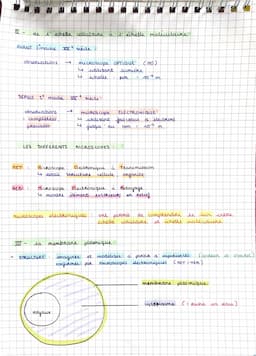 II - de l'échelle cellulaire à l'échelle moléculaire
AVANT l'année XXe siècle :
observations → microscope OPTIQUE (MO)
↳ utilisant lumière
↳ échelle
DEPUIS XXe siècle :
observations → microscope ÉLECTRONIQUE
complétées ↳ utilisant faisceau à électrons
↳ jusqu'au nm
LES DIFFÉRENTS MICROSCOPES :
MET : Microscope Électronique à Transmission
↳ détail structure cellule, organite
MEB : Microscope Électronique à Balayage
↳ montre élément extérieur en relief
microscopes électroniques ont permis de comprendre le lien entre
échelle cellulaire et échelle moléculaire
III - la membrane plasmique
• STRUCTURE : imaginée et modélisée à partir d'expériences
confirmée par microscopes électroniques (MET - MEB)
membrane plasmique
cytoplasme
noyau